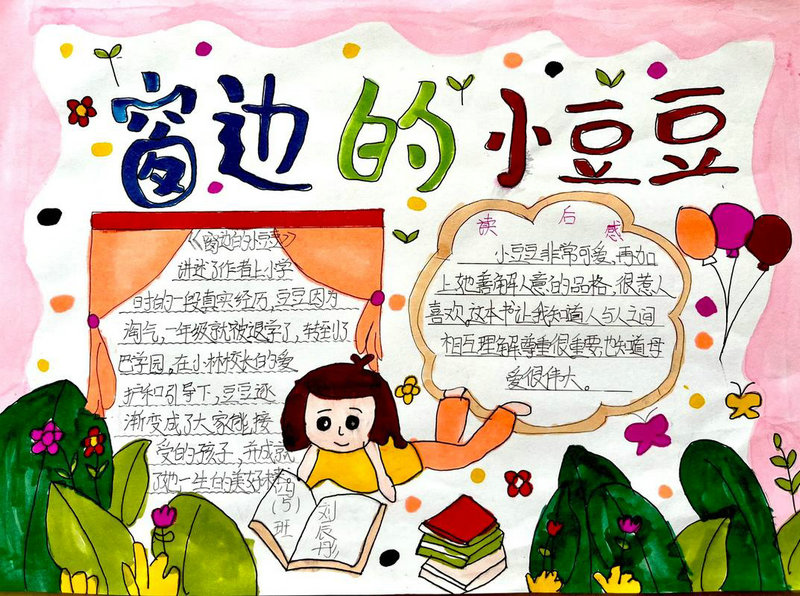 窗边的小豆豆
《窗边的小豆豆》
讲述了作者上小学
时的一段真实经历,豆豆因为
淘气,一年级就被退学了,转到了
巴学园,在小林校长的爱
护和引导下,豆豆逐
渐变成了大家能接
受的孩子,并成就
了她一生的美好
读后感
小豆豆非常可爱,再加
上她善解人意的品格,很惹人
喜欢,这本书让我知道人与人之间
相互理解尊重很重要,也知道母
爱很伟大。
(5)
班
刘辰彤